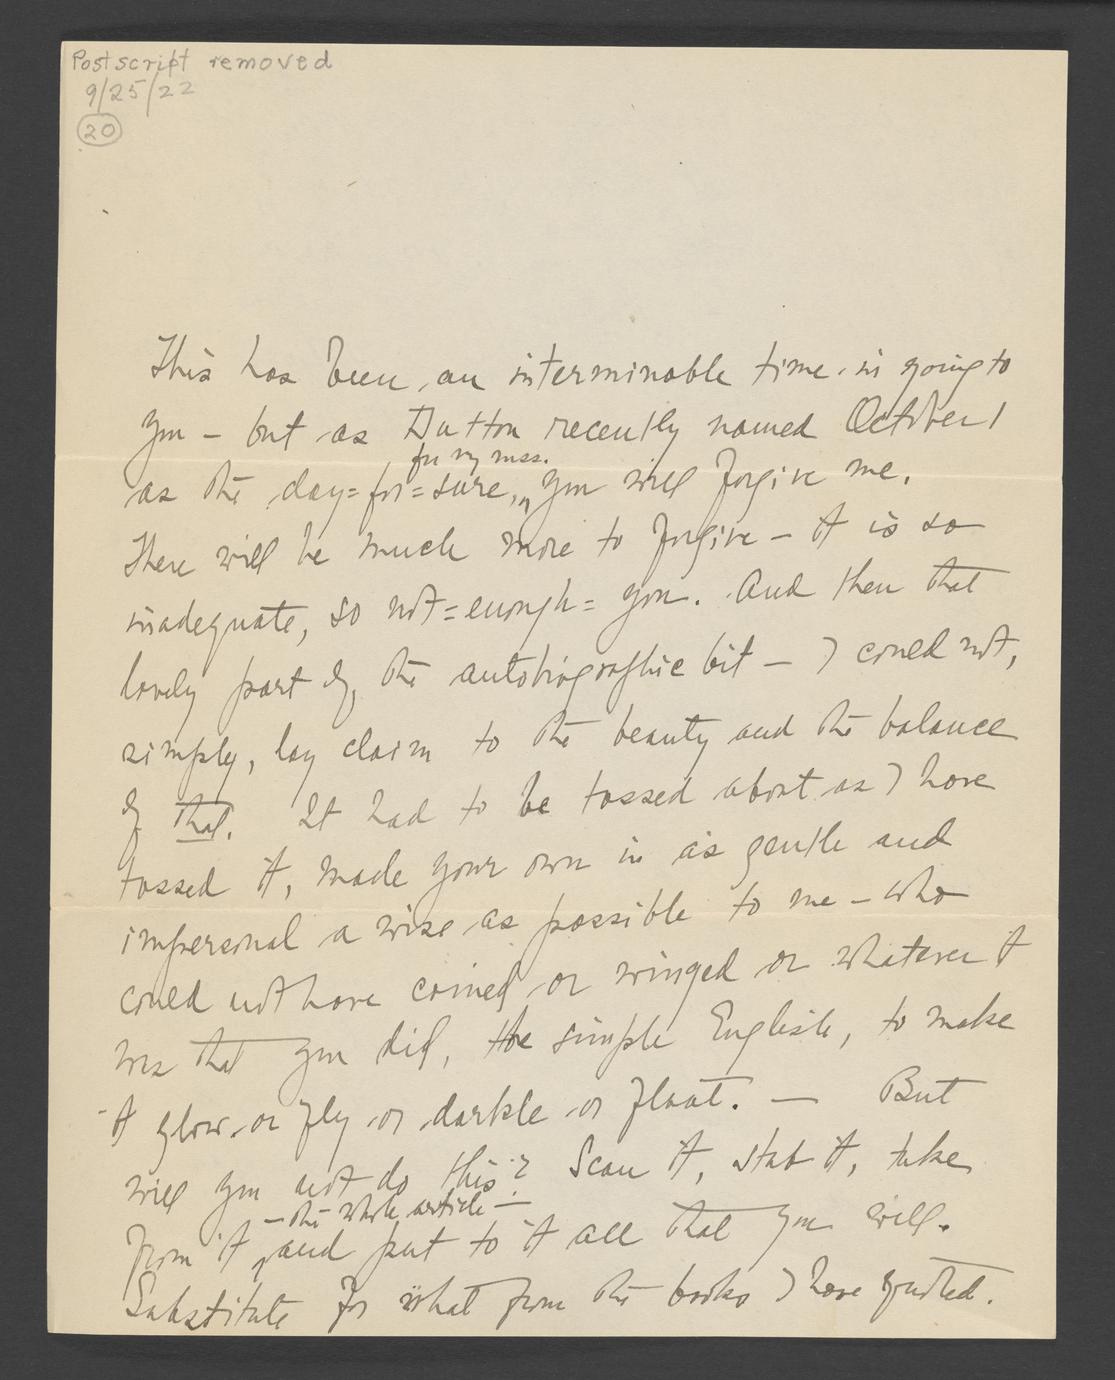 Postscript removed
9/25/22
20
This has been an interminable time in going to
you – but as Dutton recently named October 1
for my mss.
as the day=for=sure, you will forgive me.
There will be much more to forgive – it is so
inadequate, so not=enough= you. And then that
lovely part of the autobiographic bit – I could not,
simply, lay claim to the beauty and the balance
of that. It had to be tossed about as I have
tossed it, made your own in as gentle and
impersonal a wise as possible to me – who
could not have coined or winged or whatever it
was that you did, the simple English, to make
it glow or fly or darkle or float. — But
will you not do this? Scan it, stab it, take
– the whole article –
from it, and put to it all that you will.
Substitute for what from the books I have quoted.